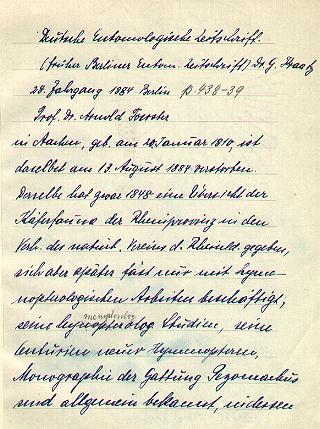 Deutsche Entomologische Zeitschrift.
(früher Berliner Entom. Zeitschrift) Dr. G. Kraatz
28. Jahrgang 1884 Berlin p 438-39
Prof. Dr. Arnold Foerster
in Aachen, geb. am 20. Januar 1810, ist
daselbst am 13. August 1884 verstorben.
Derselbe hat zwar 1848 eine Übersicht der
Käferfauna der Rheinprovinz in den
Verh. des naturh. Vereins d. Rheinld. gegeben,
sich aber später fast nur mit hyme-
nopterologischen Arbeiten beschäftigt,
menopterolog
seine hymopterolog Studien, seine
Centurien neuer Hymenopteren,
Monographie der Gattung Pezomachus
sind allgemein bekannt, indessen